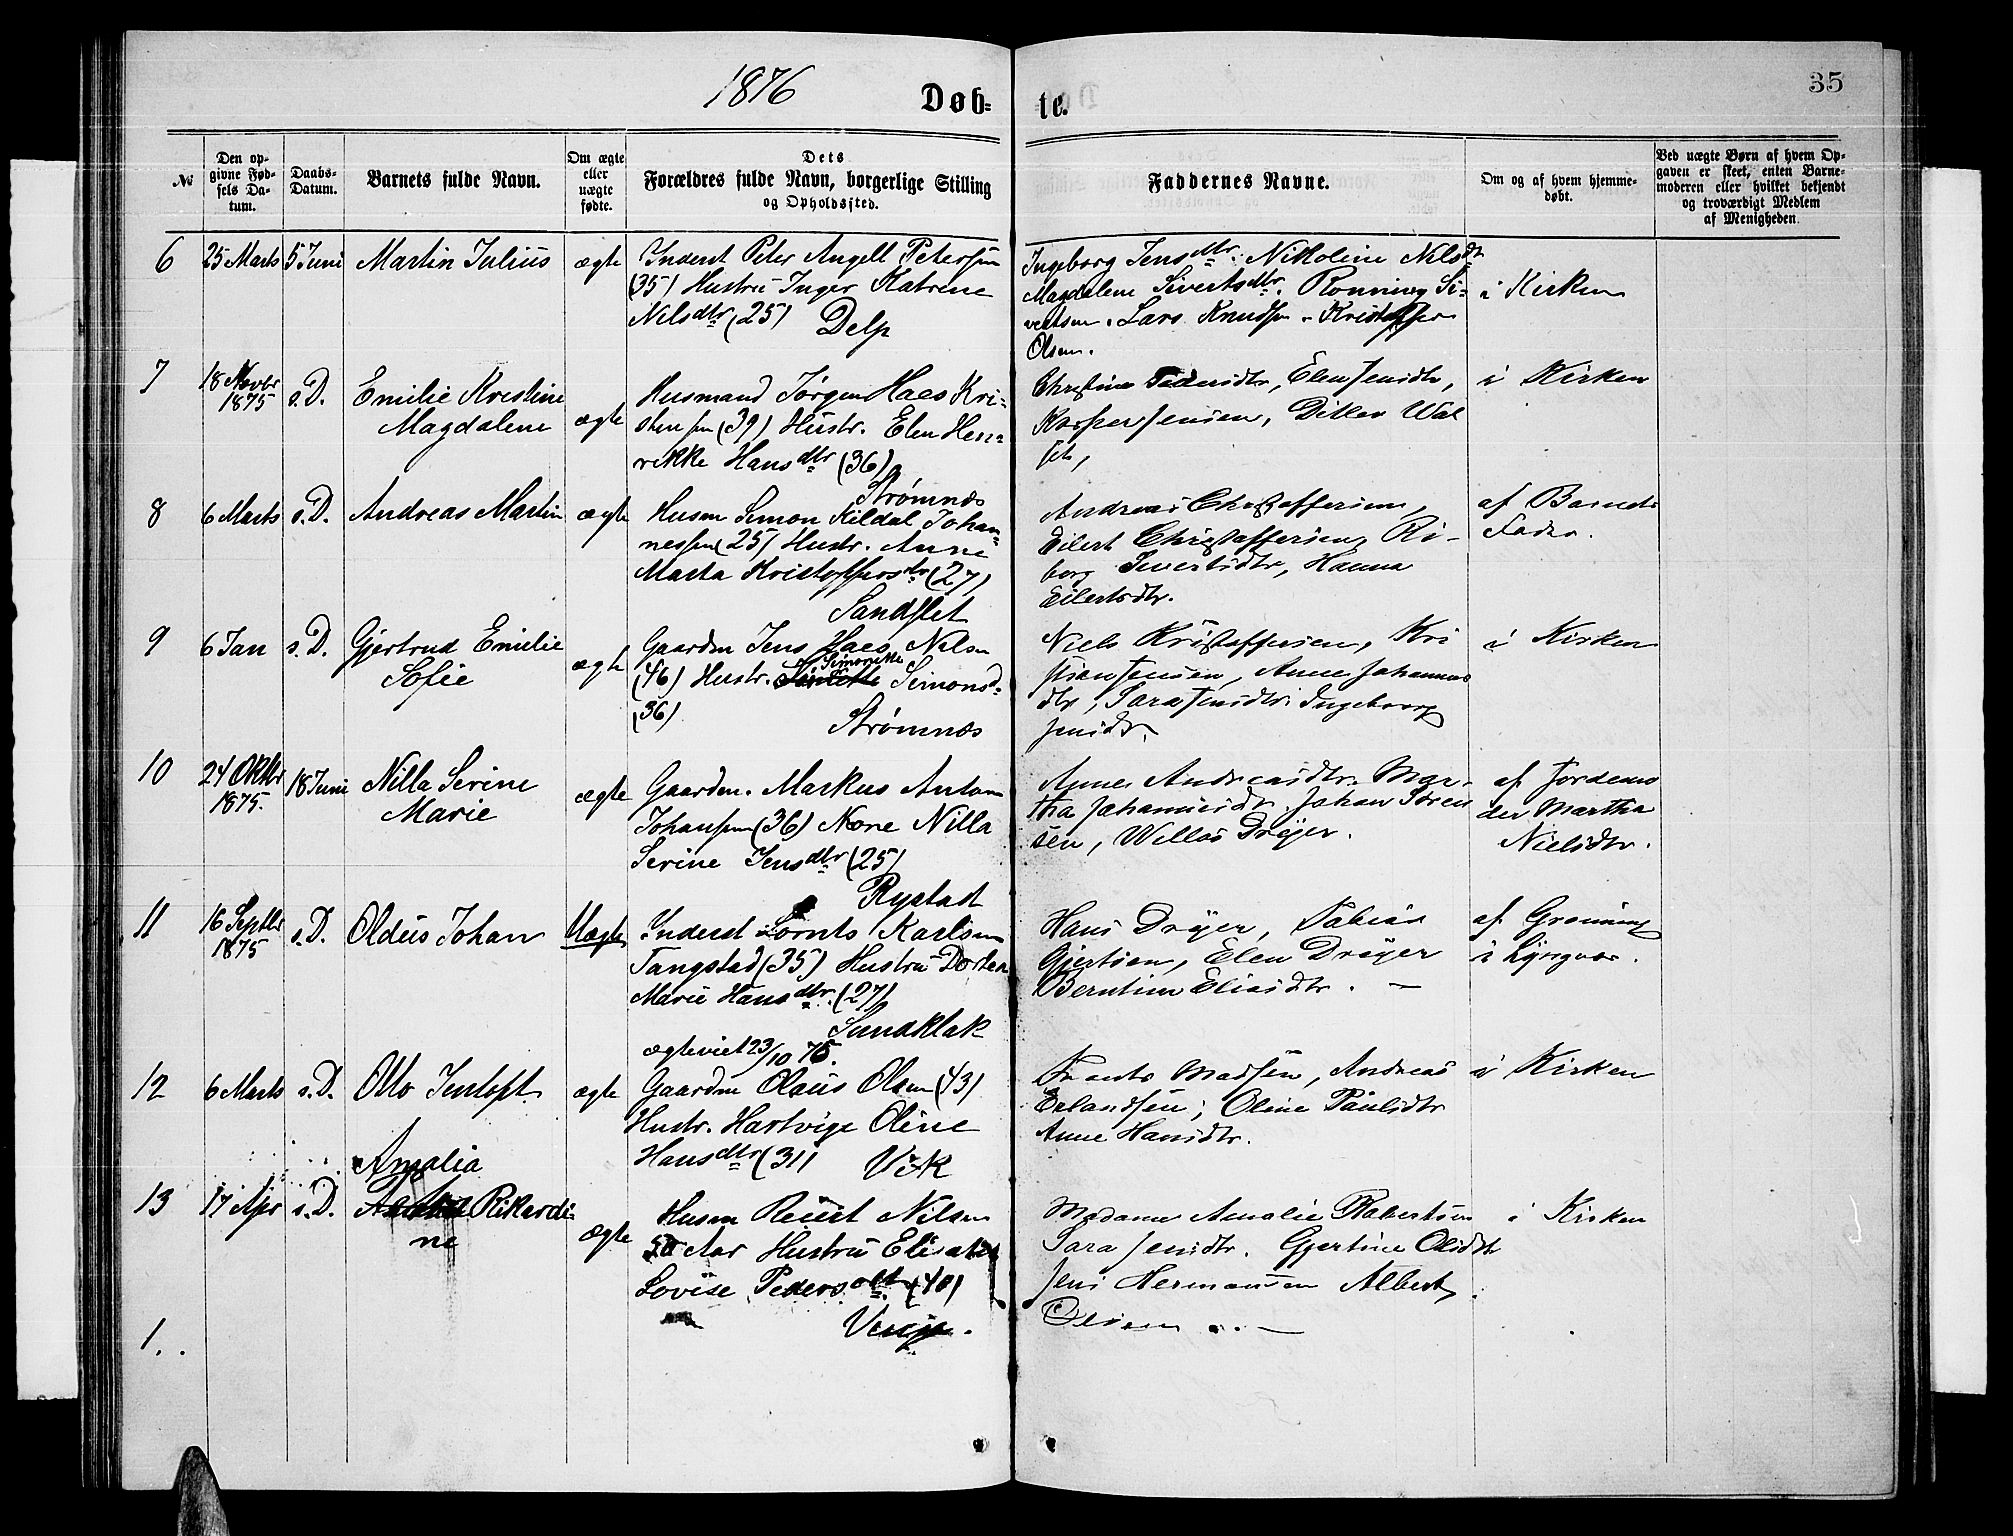 1876
Døb-
te.
35
№
Den op-
givne Fød-
sels Da-
tum.
Daabs-
Datum.
Barnets fulde Navn.
Om ægte
eller
uægte
fødte.
Dets
Forældres fulde Navn, borgerlige Stilling
og Opholdssted.
Faddernes Navne.
Om og af hvem hjemme-
døbt.
Ved uægte Børn af hvem Op-
gaven er skeet, enten Barne-
moderen eller hvilket bekjendt
og troværdigt Medlem
af Menigheden.
6
25 Marts
5 Juni
Martin Julius
ægte
Inderst Peter Angell Petersen
(35) Hustru Inger Katrine
Nilsdtr (25) Delp
Ingeborg Jensdtr. Nikoline Nilsdtr
Magdalene Sivertsdtr. Ronning Si-
vertsen. Lars Knudsen. Kristoffer
Olsen.
i Kirken
7
18 Novbr
1875
s.D.
Emilie Kristine
Magdalene
ægte
Husmand Jørgen Haes Kri-
stensen (39) Hustr. Elen Hen-
rikke Hansdtr (36)
Strømnæs
Christine Pedersdtr, Elen Jensdtr,
Kasper Jensen, Ditlev Wat
i Kirken
8
6 Marts
s.D.
Andreas Martin
ægte
Husm Simon Kildal Johan-
nessen (25) Hustr. Anne
Marta Kristoffersdtr (27)
Sandslet
Andreas Christoffersen,
Eilert Christoffersen, Ri-
borg Sivertsdtr, Hanna
Eilertsdtr.
af Barnets
Fader.
9
6 Jan
s.D.
Gjertrud Emilie
Sofie
ægte
Gaardm Jens Haes Nilsen
(46) Hustr. Simonette Simonsd-
(36)
Strømnæs
Niels Kristoffersen, Kri
stian Jensen, Anne Johannes
dtr, Sara Jensdtr. Ingeborg
Jensdtr.
i Kirken
10
24 Oktbr
1875.
18 Juni
Nilla Serine
Marie
ægte
Gaardm. Markus Anton
Johansen (36) Kone Nilla
Serine Jensdtr (25)
Rystad
Anne Andreasdtr. Mar-
tha Johannesdtr. Johan Søren
sen, Willas Dreyer.
af Jordemo
der Martha
Nielsdtr.
11
16 Septbr
1875
s.D.
Oldus Johan
Uægte
Inderst Lornts Karlsen
Tangstad (35) Hustru Dorthea
Marie Hansdtr. (27)
Sundklak
ægteviet 23/10 75.
Hans Dreyer, Tobias
Gjertsen, Elen Dreyer
Berntine Eliasdtr. —
af Grønning
i Lyngvær.
12
6 Marts
s.D.
Otto Jentoft
ægte
Gaardm Olaus Olsen (43)
Hustr. Hartvige Oline
Hansdtr (31) Vik
Frants Madsen, Andreas
Erlandsen, Oline Paulsdtr
Anne Hansdtr.
i Kirken
13
17 Apr
s.D.
Amalia
Rikardi-
ne
ægte
Husm Reiert Nilsen
50 Aar Hustru Elisabet
Lovise Pedersdtr. (40)
Madame Amalie Robertsen
Sara Jensdtr. Gjertine Olsdtr
Jens Hermansen Albert
Olsen. —
i Kirken
1.